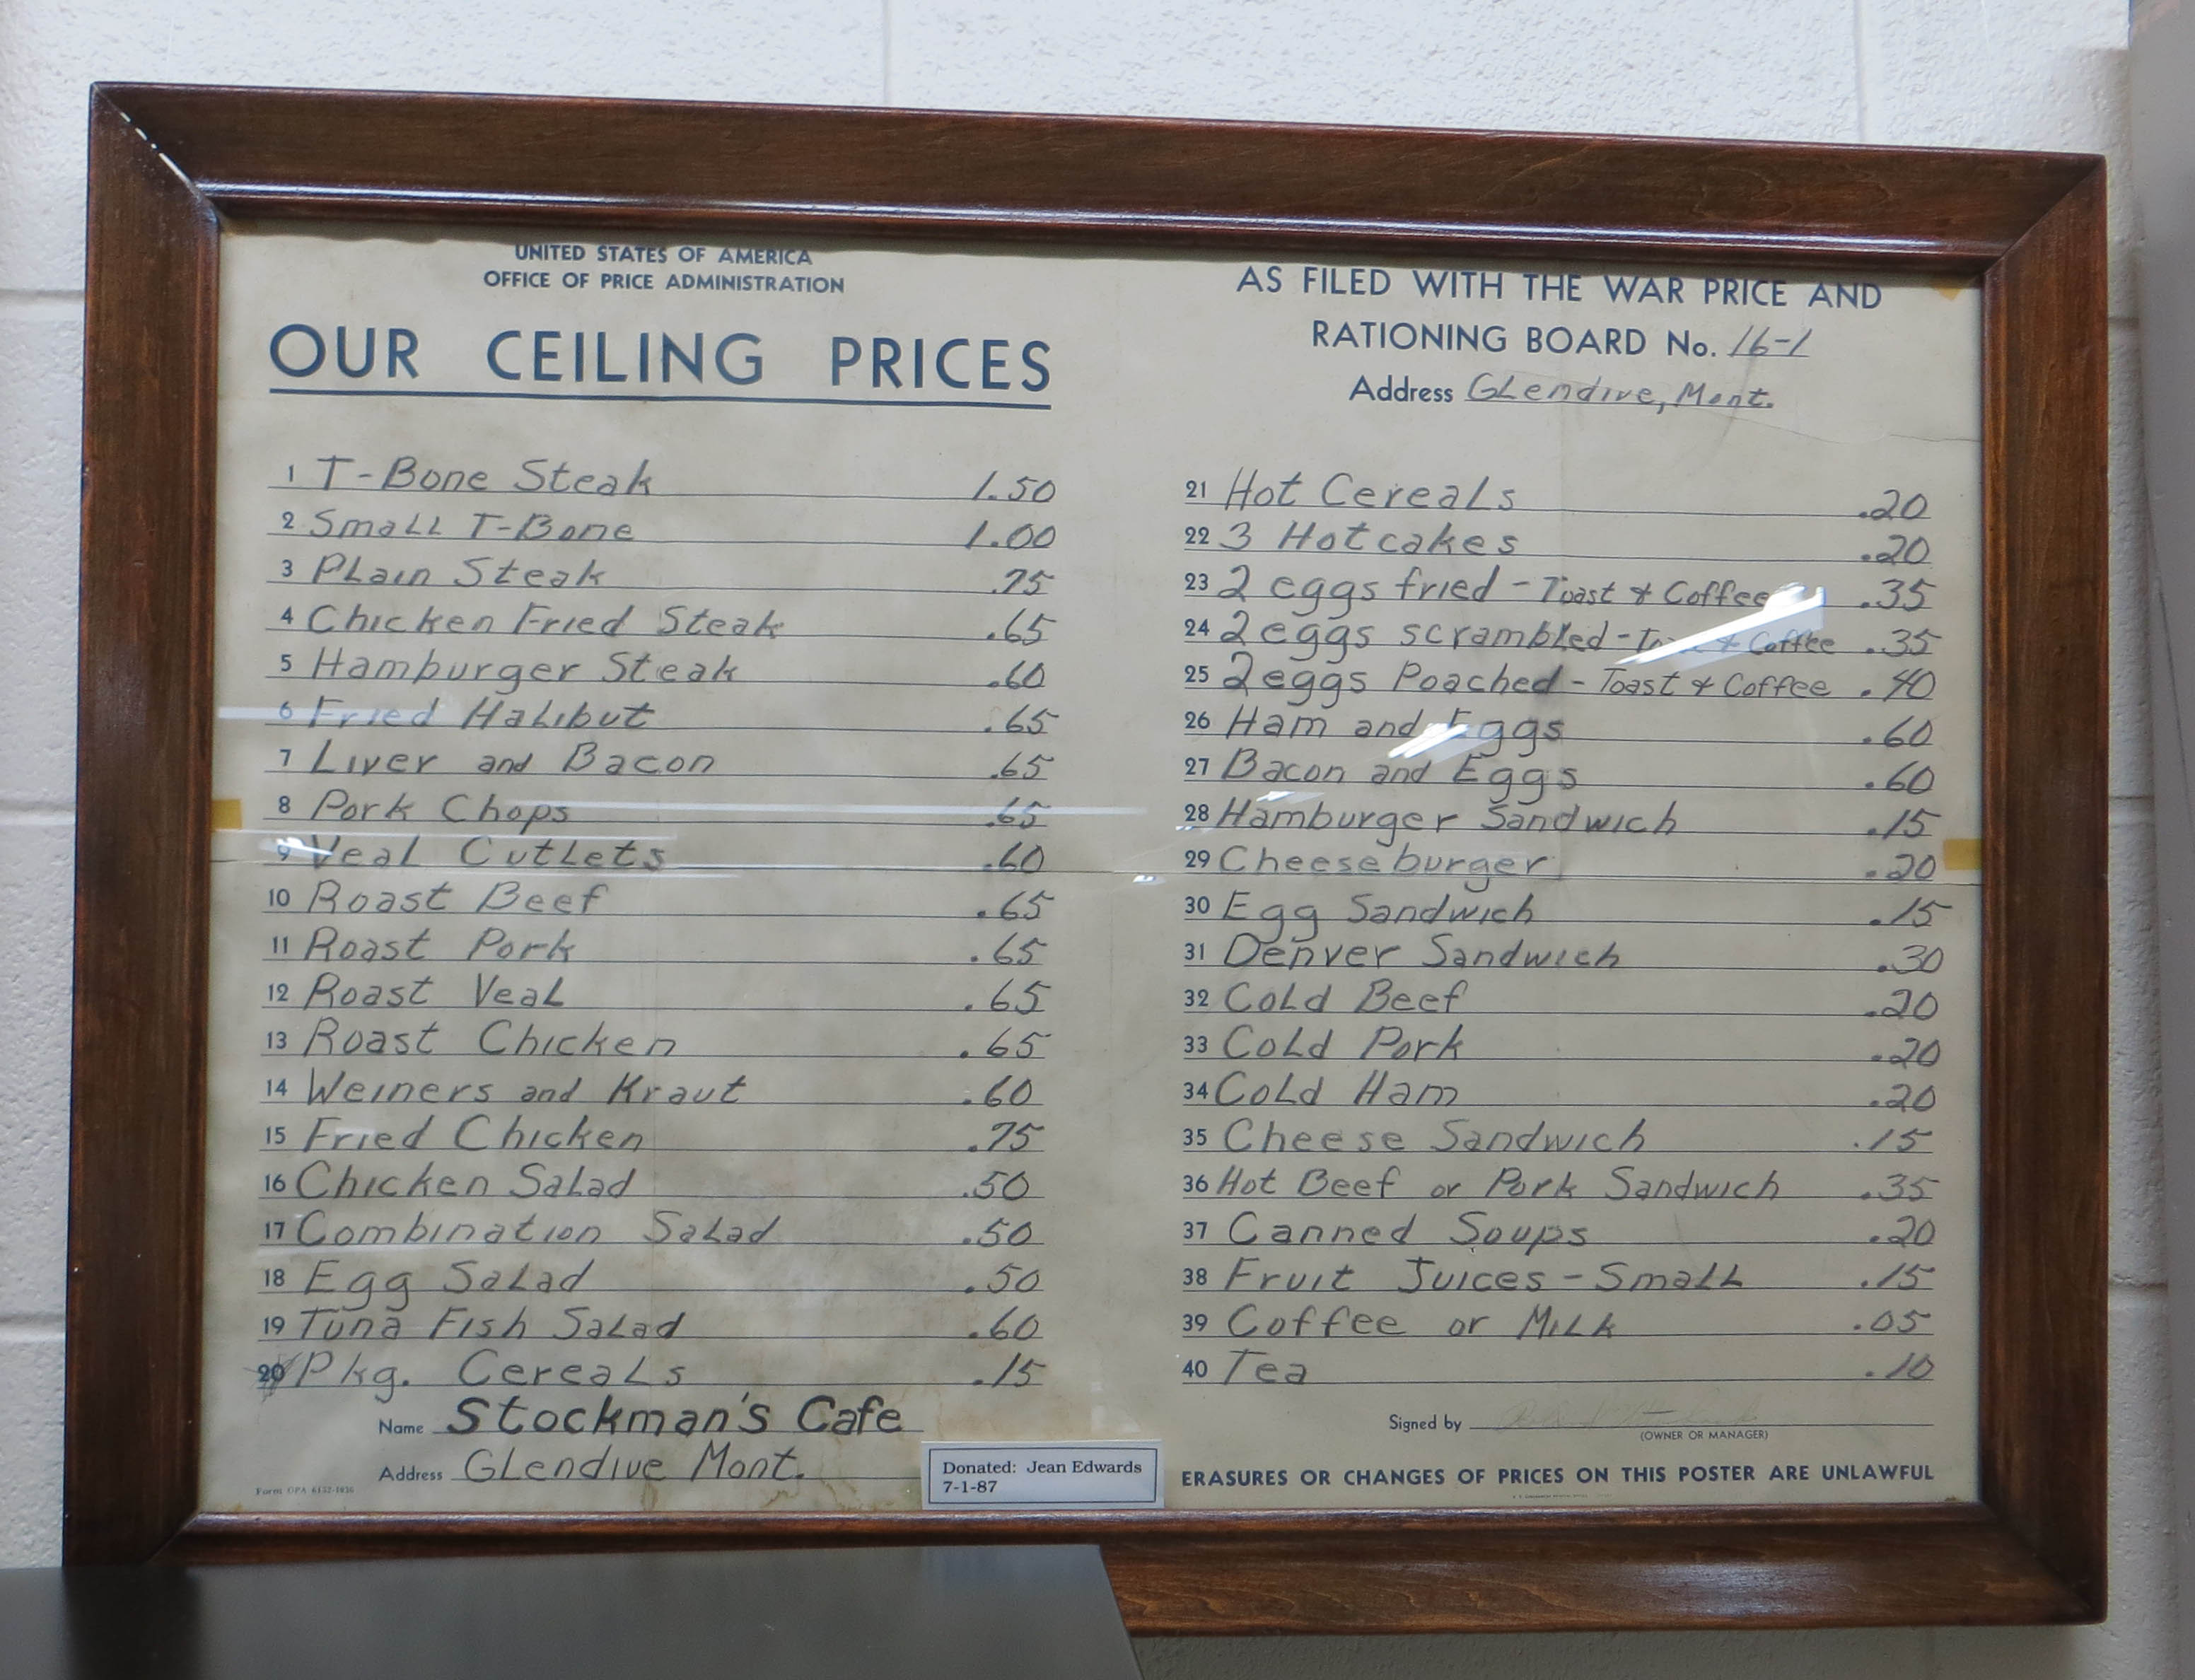 UNITED STATES OF AMERICA
OFFICE OF PRICE ADMINISTRATION
OUR CEILING PRICES
1 T-Bone Steak 1.50
2 Small T-Bone 1.00
3 Plain Steak .75
4 Chicken Fried Steak .65
5 Hamburger Steak .60
6 Fried Halibut .65
7 Liver and Bacon .65
8 Pork Chops .65
9 Veal Cutlets .60
10 Roast Beef .65
11 Roast Pork .65
12 Roast Veal .65
13 Roast Chicken .65
14 Weiners and Kraut .60
15 Fried Chicken .75
16 Chicken Salad .50
17 Combination Salad .50
18 Egg Salad .50
19 Tuna Fish Salad .60
20 Pkg. Cereals .15
Name Stockman's Cafe
Address Glendive Mont.
Donated: Jean Edwards
7-1-87
AS FILED WITH THE WAR PRICE AND
RATIONING BOARD No. 16-1
Address Glendive, Mont.
21 Hot Cereals .20
22 3 Hotcakes .20
23 2 eggs fried - Toast & Coffee .35
24 2 eggs scrambled - Toast & Coffee .35
25 2 eggs Poached - Toast & Coffee .40
26 Ham and Eggs .60
27 Bacon and Eggs .60
28 Hamburger Sandwich .15
29 Cheeseburger .20
30 Egg Sandwich .15
31 Denver Sandwich .30
32 Cold Beef .20
33 Cold Pork .20
34 Cold Ham .20
35 Cheese Sandwich .15
36 Hot Beef or Pork Sandwich .35
37 Canned Soups .20
38 Fruit Juices - Small .15
39 Coffee or Milk .05
40 Tea .10
Signed by
(OWNER OR MANAGER)
ERASURES OR CHANGES OF PRICES ON THIS POSTER ARE UNLAWFUL